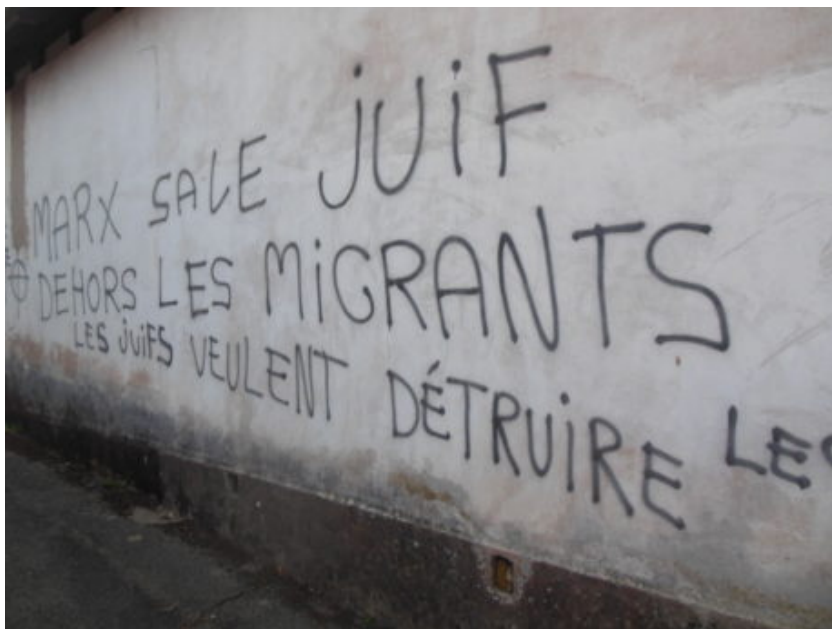 MARX SALE JUIF
DEHORS LES MiGRANTS
LES JUiFS VEULENT DÉTRUiRE